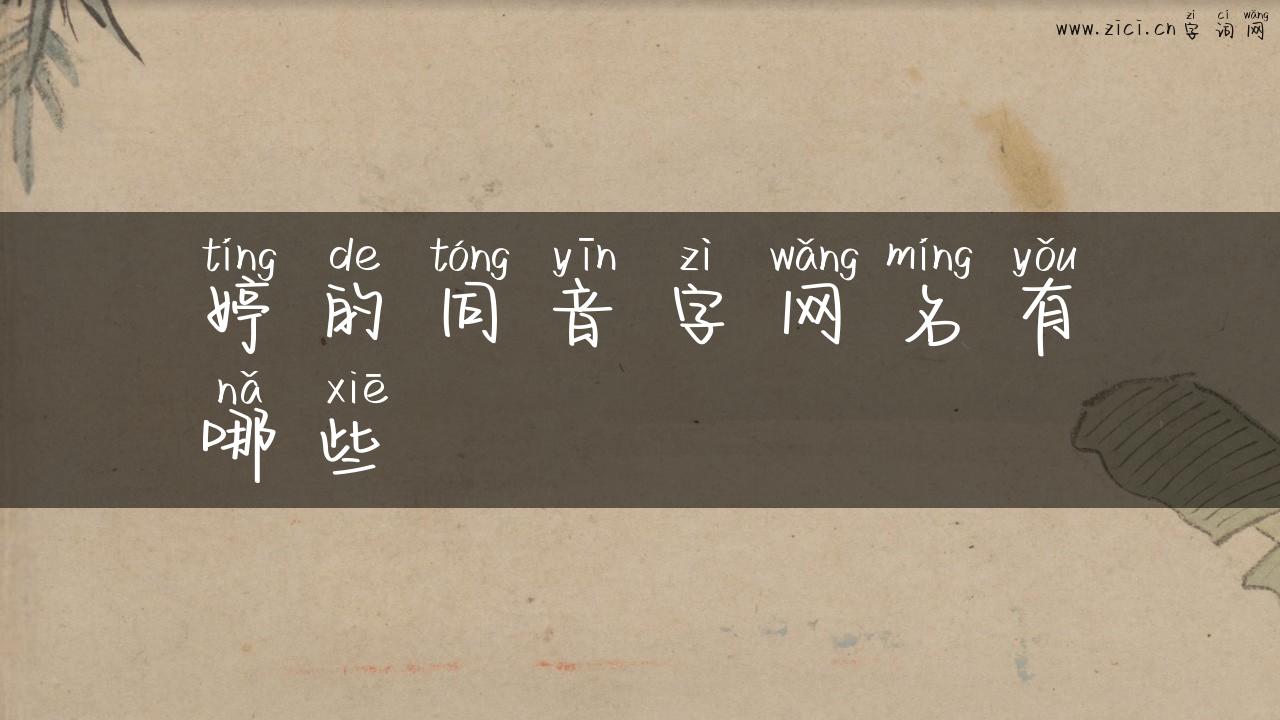 zì cí wǎng
www.zici.cn 字词网
tíng de tóng yīn zì wǎng míng yǒu
婷的同音字网名有
nǎ xiē
哪些